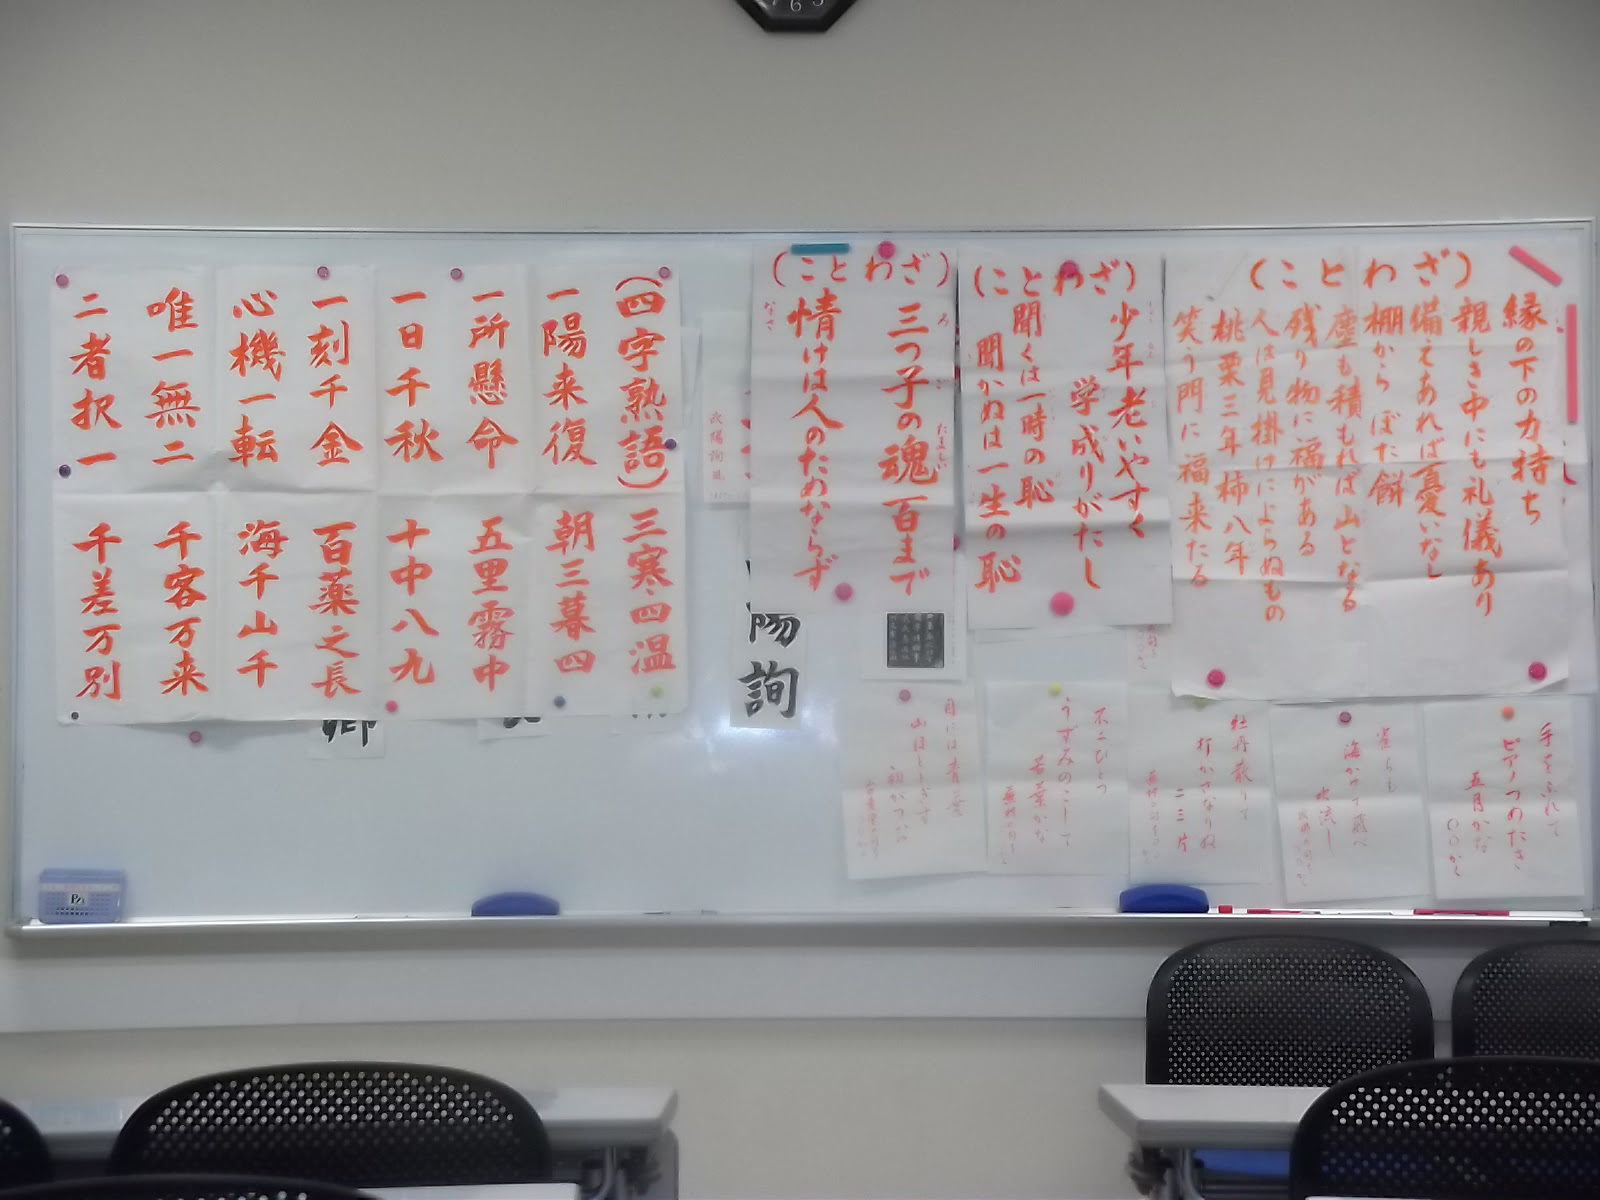 (ことわざ)
縁の下の力持ち
親しき中にも礼儀あり
備えあれば憂いなし
棚からぼた餅
塵も積もれば山となる
残り物に福がある
人は見掛けによらぬもの
桃栗三年柿八年
笑う門に福来たる
(ことわざ)
少年老いやすく
学成りがたし
聞くは一時の恥
聞かぬは一生の恥
(ことわざ)
三つ子の魂百まで
たましい
情けは人のためならず
なさ
(四字熟語)
三寒四温
一陽来復
朝三暮四
一所懸命
五里霧中
一日千秋
十中八九
一刻千金
百薬之長
心機一転
海千山千
唯一無二
千客万来
二者択一
千差万別
陽詢
手をふれて
ピアノつめたき
五月かな
牡丹散りて
打かさなりぬ
二三片
不二ひとつ
うずみのこして
若葉かな
目には青葉
山ほととぎす
初がつお